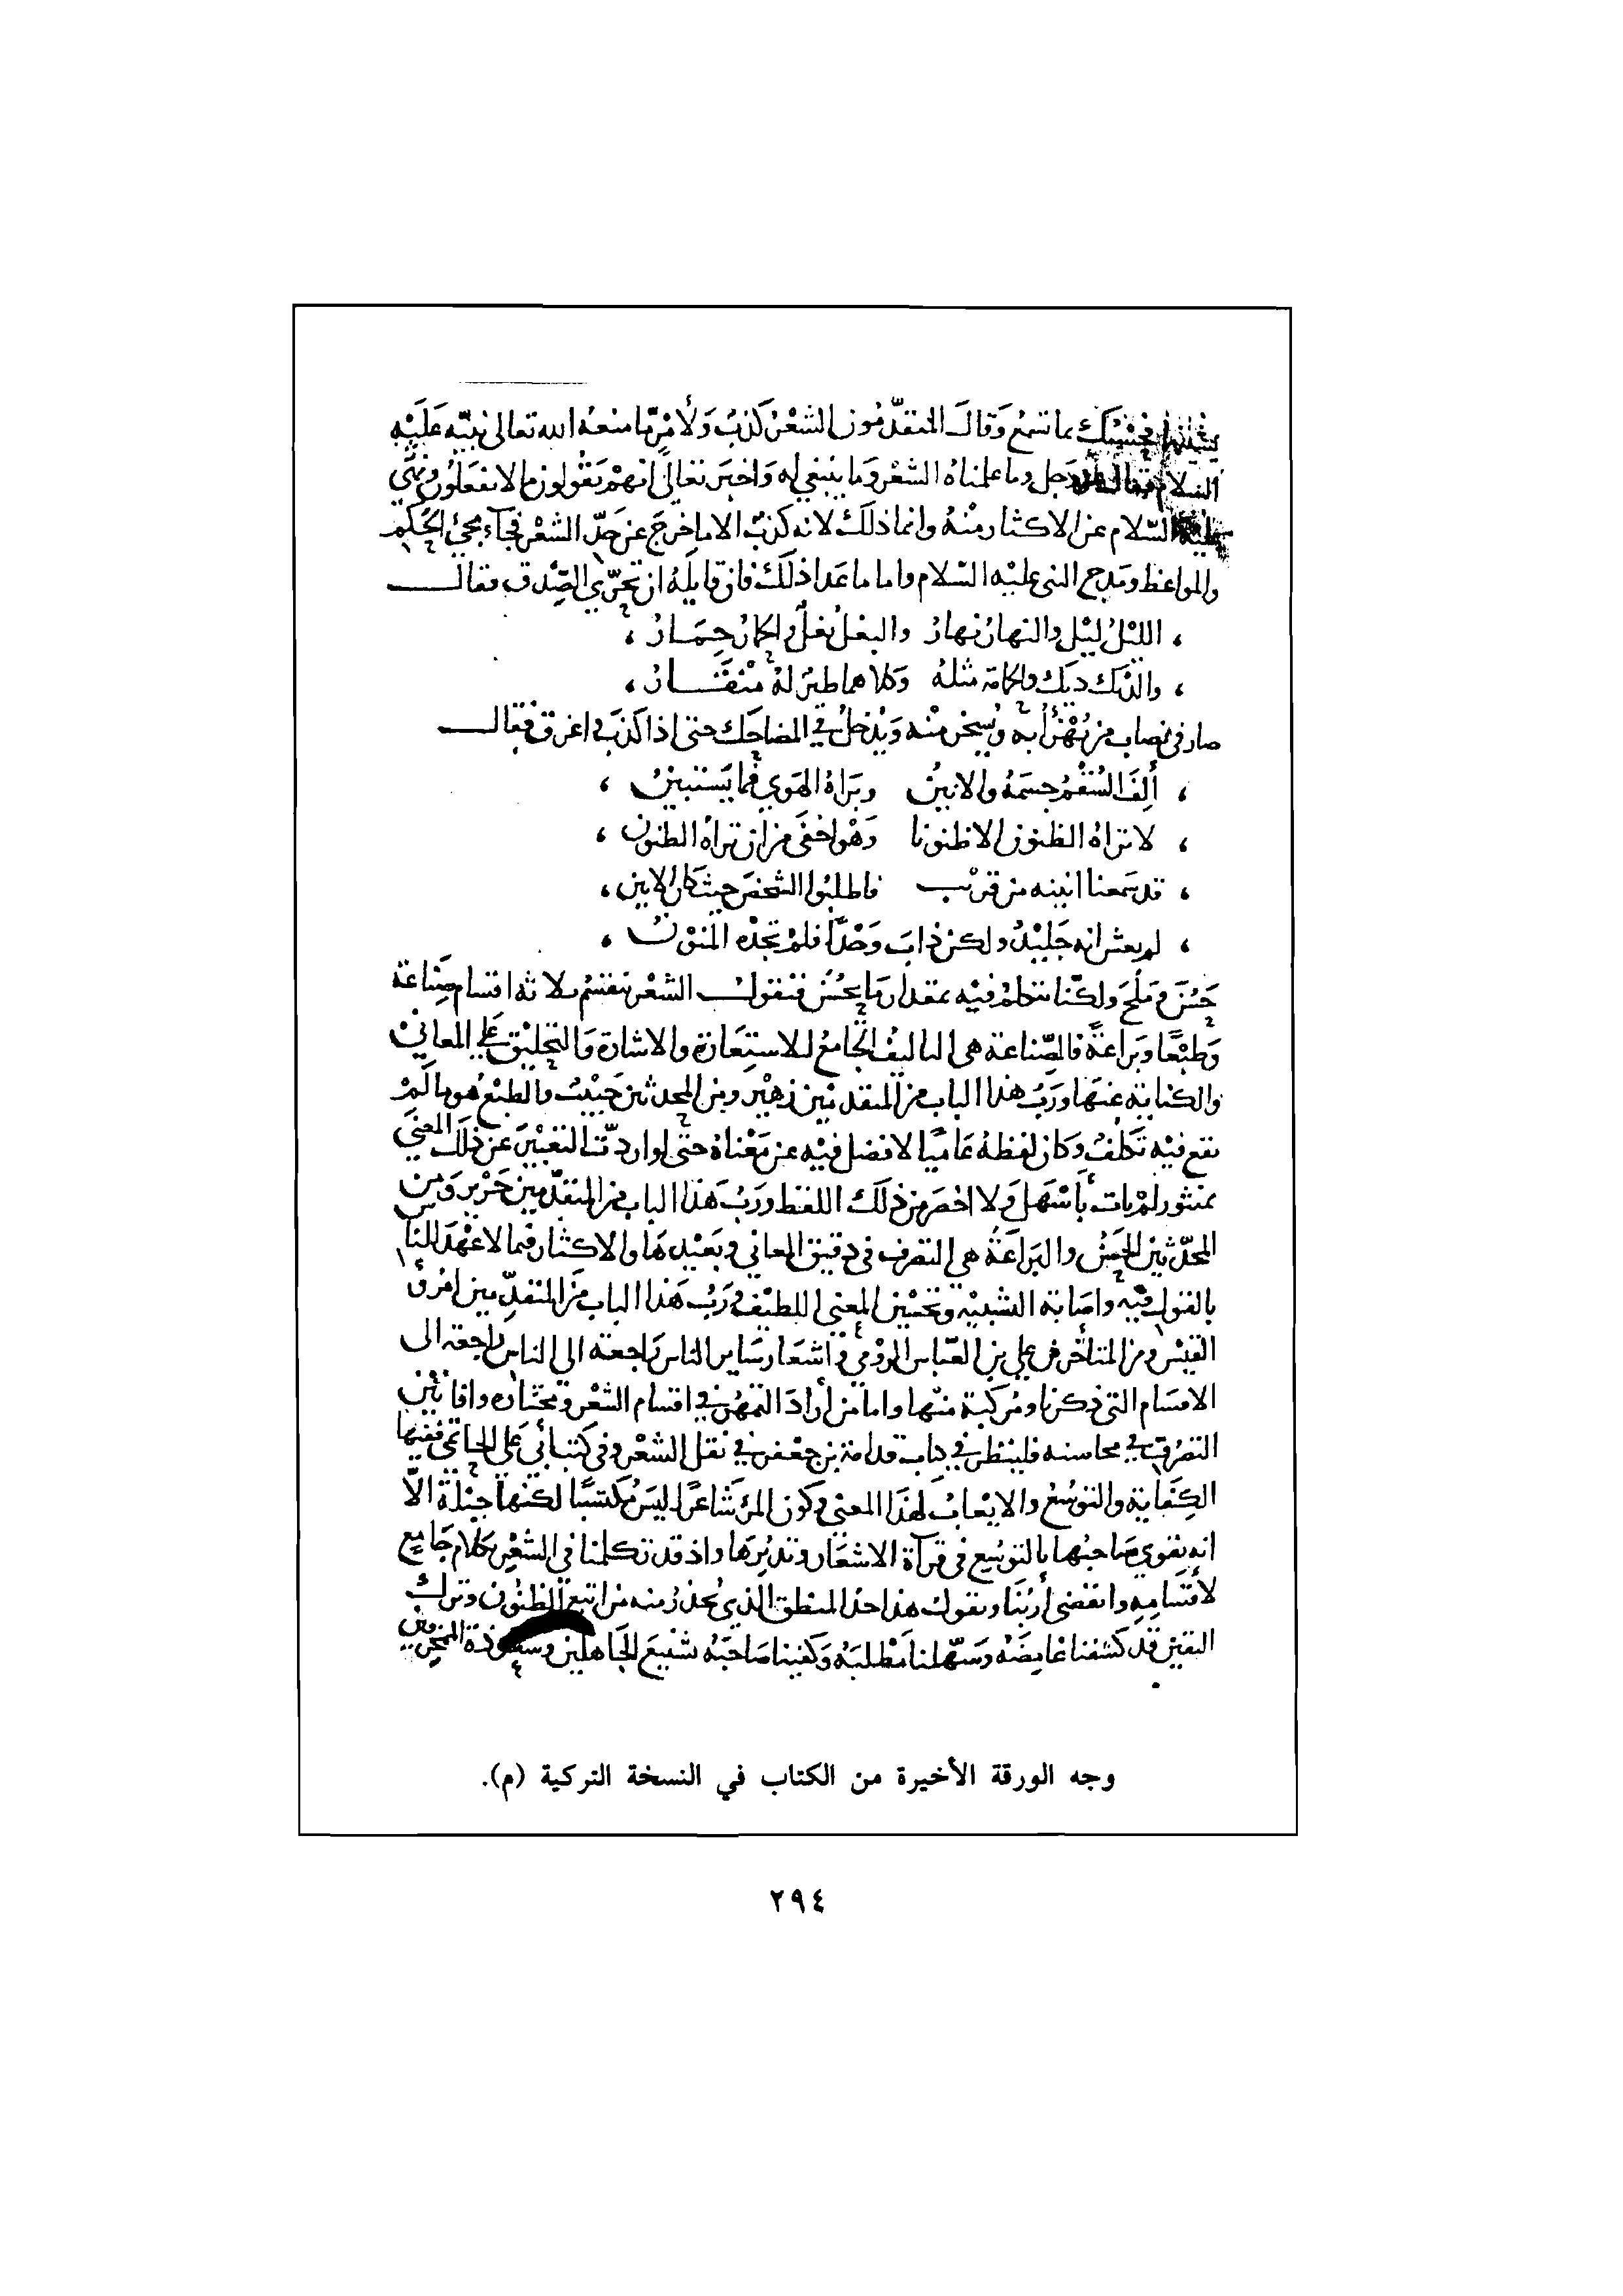 فحسبك بما تسمع وقال المتقدمون الشعر كذب ولامر ما منعه الله تعالى نبيه عليه
السلام فقال وجل وما علمناه الشعر وما ينبغي له واخبر تعالى انهم يقولون ما لا يفعلون ونهى
عليه السلام عن الاكثار منه وانما ذلك لانه كذب الا ما خرج عن حد الشعر فجاء مجئ الحكم
والمواعظ ومدح النبي عليه السلام واما ما عدا ذلك فان قايله ان تحرى الصدق فقال
، الليل ليل والنهار نهار والبغل بغل والحمار حمار ،
، والديك ديك والحمامة مثله وكلاهما طير له منقار ،
صار في نصاب من يهزأ به ويسخر منه ويدخل في المضاحك حتى اذا كذب واغرق فقال
، ألف السقم جسمه والانين وبراه الهوي فما يستبين ،
، لا تراه الظنون الا ظنونا وهو اخفى من ان تراه الظنون ،
، قد سمعنا انينه من قريب فاطلبوا الشخص حيث كان الانين ،
، لم يعش انه جليد ولكن ذاب وجدا فلم تجده المنون ،
حسن وملح ولكنا نتكلم فيه بمقدار ما يحسن فنقول الشعر ينقسم ثلاثة اقسام صناعة
وطبعا وبراعة فالصناعة هي التاليف الجامع للاستعارة والاشارة والتحليق علي المعاني
والكناية عنها ورب هذا الباب من المتقدمين زهير ومن المحدثين حبيب والطبع هو ما لم
يقع فيه تكلف وكان لفظه عاميا لا فضل فيه عن معناه حتى لو اردت التعبير عن ذلك المعنى
بمنثور لم يات بأسهل ولا اخصر من ذلك اللفظ ورب هذا الباب من المتقدمين جرير ومن
المحدثين الحسن والبراعة هي التصرف في دقيق المعاني وبعيدها والاكثار فيما لا عهد للناس
بالقول فيه واصابة التشبيه وتحسين المعنى اللطيف ورب هذا الباب من المتقدمين امرؤ
القيس ومن المتاخرين علي بن العباس الرومي واشعار ساير الناس راجعة الى الناس راجعة الى
الاقسام التي ذكرنا ومركبة منها واما من أراد التمهر في اقسام الشعر ومختاره وافانين
التصرف في محاسنه فلينظر في كتاب قدامة بن جعفر في نقد الشعر وفي كتب أبي علي الحاتمي ففيها
الكفاية والتوسع والايعاب لهذا المعنى وكون المرء شاعرا ليس مكتسبا لكنها جبلة الا
انه يقوي صاحبها بالتوسع في قرآة الاشعار وتدبرها واذ قد تكلمنا في الشعر بكلام جامع
لأقسامه وانقضى أربنا ونقول هذا حد المنطق الذي يحذر منه من اتبع الظنون وترك
اليقين قد كشفنا غامضه وسهلنا مطلبه وكفينا صاحبه تشنيع الجاهلين وشعوذة الممخرقين
وجه الورقة الأخيرة من الكتاب في النسخة التركية (م).
٢٩٤